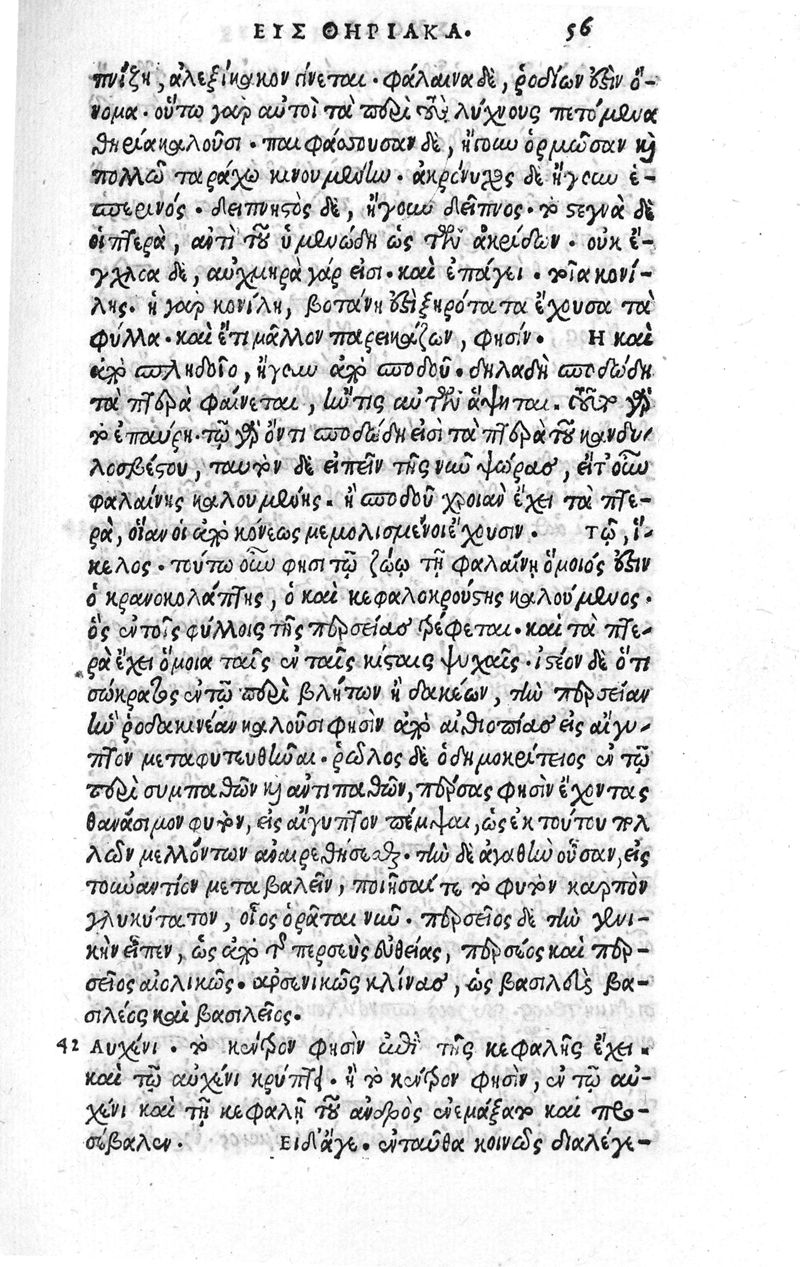 ΕΙΣ ΘΗΡΙΑΚΑ. 56
πνίζη, ἀλεξίκακον γίνεται. φάλαινα δὲ, ῥοδίων ἐστὶν ὄ-
νομα. οὕτω γὰρ αὐτοὶ τὰ περὶ τοὺς λύχνους πετόμενα
θηρία καλοῦσι. παιφάσσουσαν δὲ, ἤγουν ὁρμῶσαν καὶ
πολλῷ ταράχῳ κινουμένην. ἀκρόνυχος δὲ ἤγουν ἑ-
σπερινός. δειπνητὸς δὲ, ἤγουν δεῖπνος. τὸ στεγνὰ δὲ
οἱ πτερὰ, ἀντὶ τοῦ ὑμενώδη ὡς τῶν ἀκρίδων. οὐκ ἔ-
γχλοα δὲ, αὐχμηρὰ γάρ εἰσι. καὶ ἐπάγει. τοῖα κονί-
λης. ἡ γὰρ κονίλη, βοτάνη ἐστὶ ξηρότατα ἔχουσα τὰ
φύλλα. καὶ ἔτι μᾶλλον παρεικάζων, φησίν. Η καὶ
ἀπὸ σπληδοῖο, ἤγουν ἀπὸ σποδοῦ. δηλαδὴ σποδώδη
τὰ πτερὰ φαίνεται, ἤν τις αὐτῶν ἅψηται. τοῦτο γὰρ
τὸ ἐπαύρῃ. τῷ γὰρ ὄντι σποδώδη εἰσὶ τὰ πτερὰ τοῦ κανδυ-
λοσβέστου, ταυτὸν δὲ εἰπεῖν τῆς νῦν ψώρας, εἴτ' οὖν
φαλαίνης καλουμένης. ἢ σποδοῦ χροιὰν ἔχει τὰ πτε-
ρὰ, οἵαν οἱ ἀπὸ κόνεως μεμολισμένοι ἔχουσιν. τῷ, ἴ-
κελος. τούτῳ οὖν φησι τῷ ζώῳ τῇ φαλαίνῃ ὅμοιός ἐστιν
ὁ κρανοκολάπτης, ὁ καὶ κεφαλοκρούστης καλούμενος.
ὃς ἐν τοῖς φύλλοις τῆς περσείας τρέφεται. καὶ τὰ πτε-
ρὰ ἔχει ὅμοια ταῖς ἐν ταῖς κίσταις ψυχαῖς. ἰστέον δὲ ὅτι
σώκρατος ἐν τῷ περὶ βλήτων ἢ δακέων, τὴν περσείαν
ἣν ῥοδακινέαν καλοῦσι φησὶν ἀπὸ αἰθιοπίας εἰς αἴγυ-
πτον μεταφυτευθῆναι. βῶλος δὲ ὁ δημοκρίτειος ἐν τῷ
περὶ συμπαθῶν καὶ ἀντιπαθῶν, πέρσας φησὶν ἔχοντας
θανάσιμον φυτὸν, εἰς αἴγυπτον πέμψαι, ὡς ἐκ τούτου πολ
λῶν μελλόντων ἀναιρεθήσεσθαι. τὴν δὲ ἀγαθὴν οὖσαν, εἰς
τοὐναντίον μεταβαλεῖν, ποιῆσαί τε τὸ φυτὸν καρπὸν
γλυκύτατον, οἷος ὁρᾶται νῦν. πέρσειος δὲ τὴν γενι-
κὴν εἶπεν, ὡς ἀπὸ τῆς περσεὺς εὐθείας, πέρσεος καὶ πέρ-
σειος αἰολικῶς. ἀρσενικῶς κλίνας, ὡς βασιλεὺς βα-
σιλέος καὶ βασιλεῖος.
42 Αυχένι. τὸ κέντρον φησὶν ἐπὶ τῆς κεφαλῆς ἔχει.
καὶ τῷ αὐχένι κρύπτει. ἢ τὸ κέντρον φησὶν, ἐν τῷ αὐ-
χένι καὶ τῇ κεφαλῇ τοῦ ἀνδρὸς ἐνεμάξατο καὶ προ-
σέβαλεν. Ει δ' ἄγε. ἐνταῦθα κοινῶς διαλέγε-